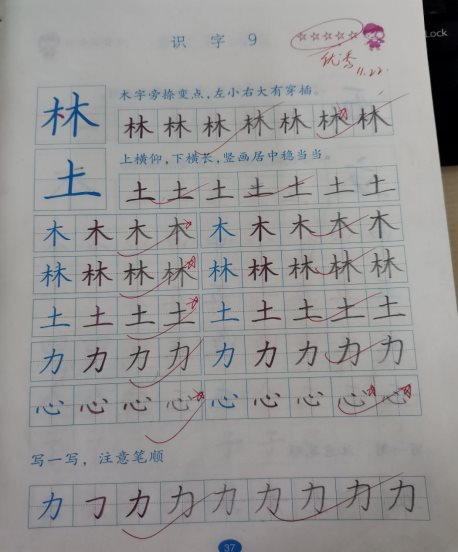 识字9
☆☆☆☆☆
优秀
11.22.
Lock
木字旁捺变点，左小右大有穿插。
林 林 林 林 林 林 林 林
上横仰，下横长，竖画居中稳当当。
土 土 土 土 土 土 土 土
木 木 木 木 木 木 木 木
林 林 林 林 林 林 林 林
土 土 土 土 土 土 土 土
力 力 力 力 力 力 力 力
心 心 心 心 心 心 心 心
写一写，注意笔顺
力 𠃌 力 力 力 力 力 力 力
37